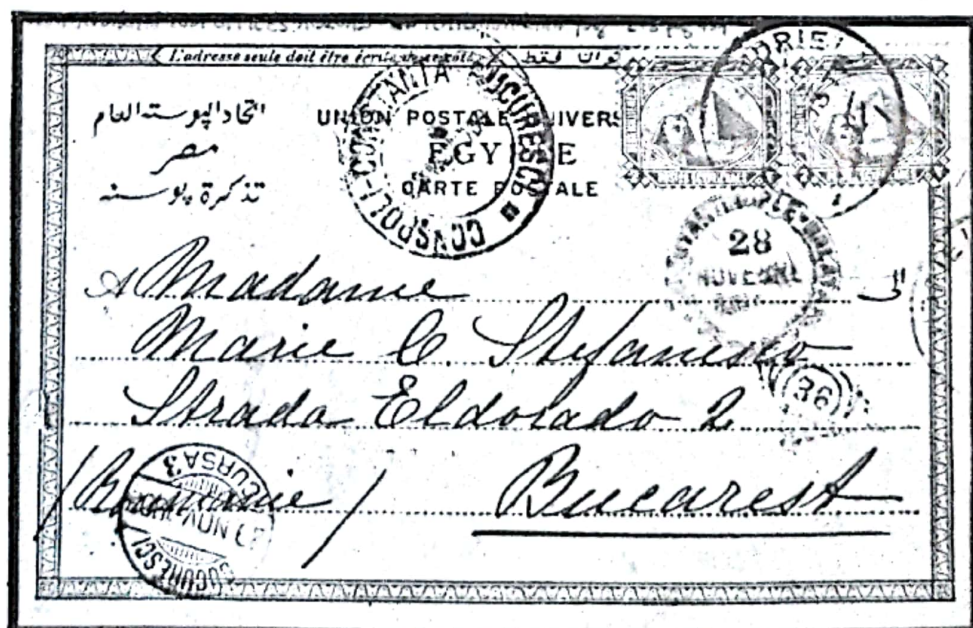 L'adresse seule doit être écrite de ce côté. فقط
اتحاد البوستة العام
مصر
تذكرة بوستة
UNION POSTALE UNIVERS
EGY E
CARTE POSTALE
CONSPOLI-CONSTANTA-BUCURESCI
28
NOVEMBRE
36
A Madame
الى
Marie C. Stefanesco
Strada Eldorado 2
/Roumanie/ Bucarest
BUCURESCI CURSA 3
NOV